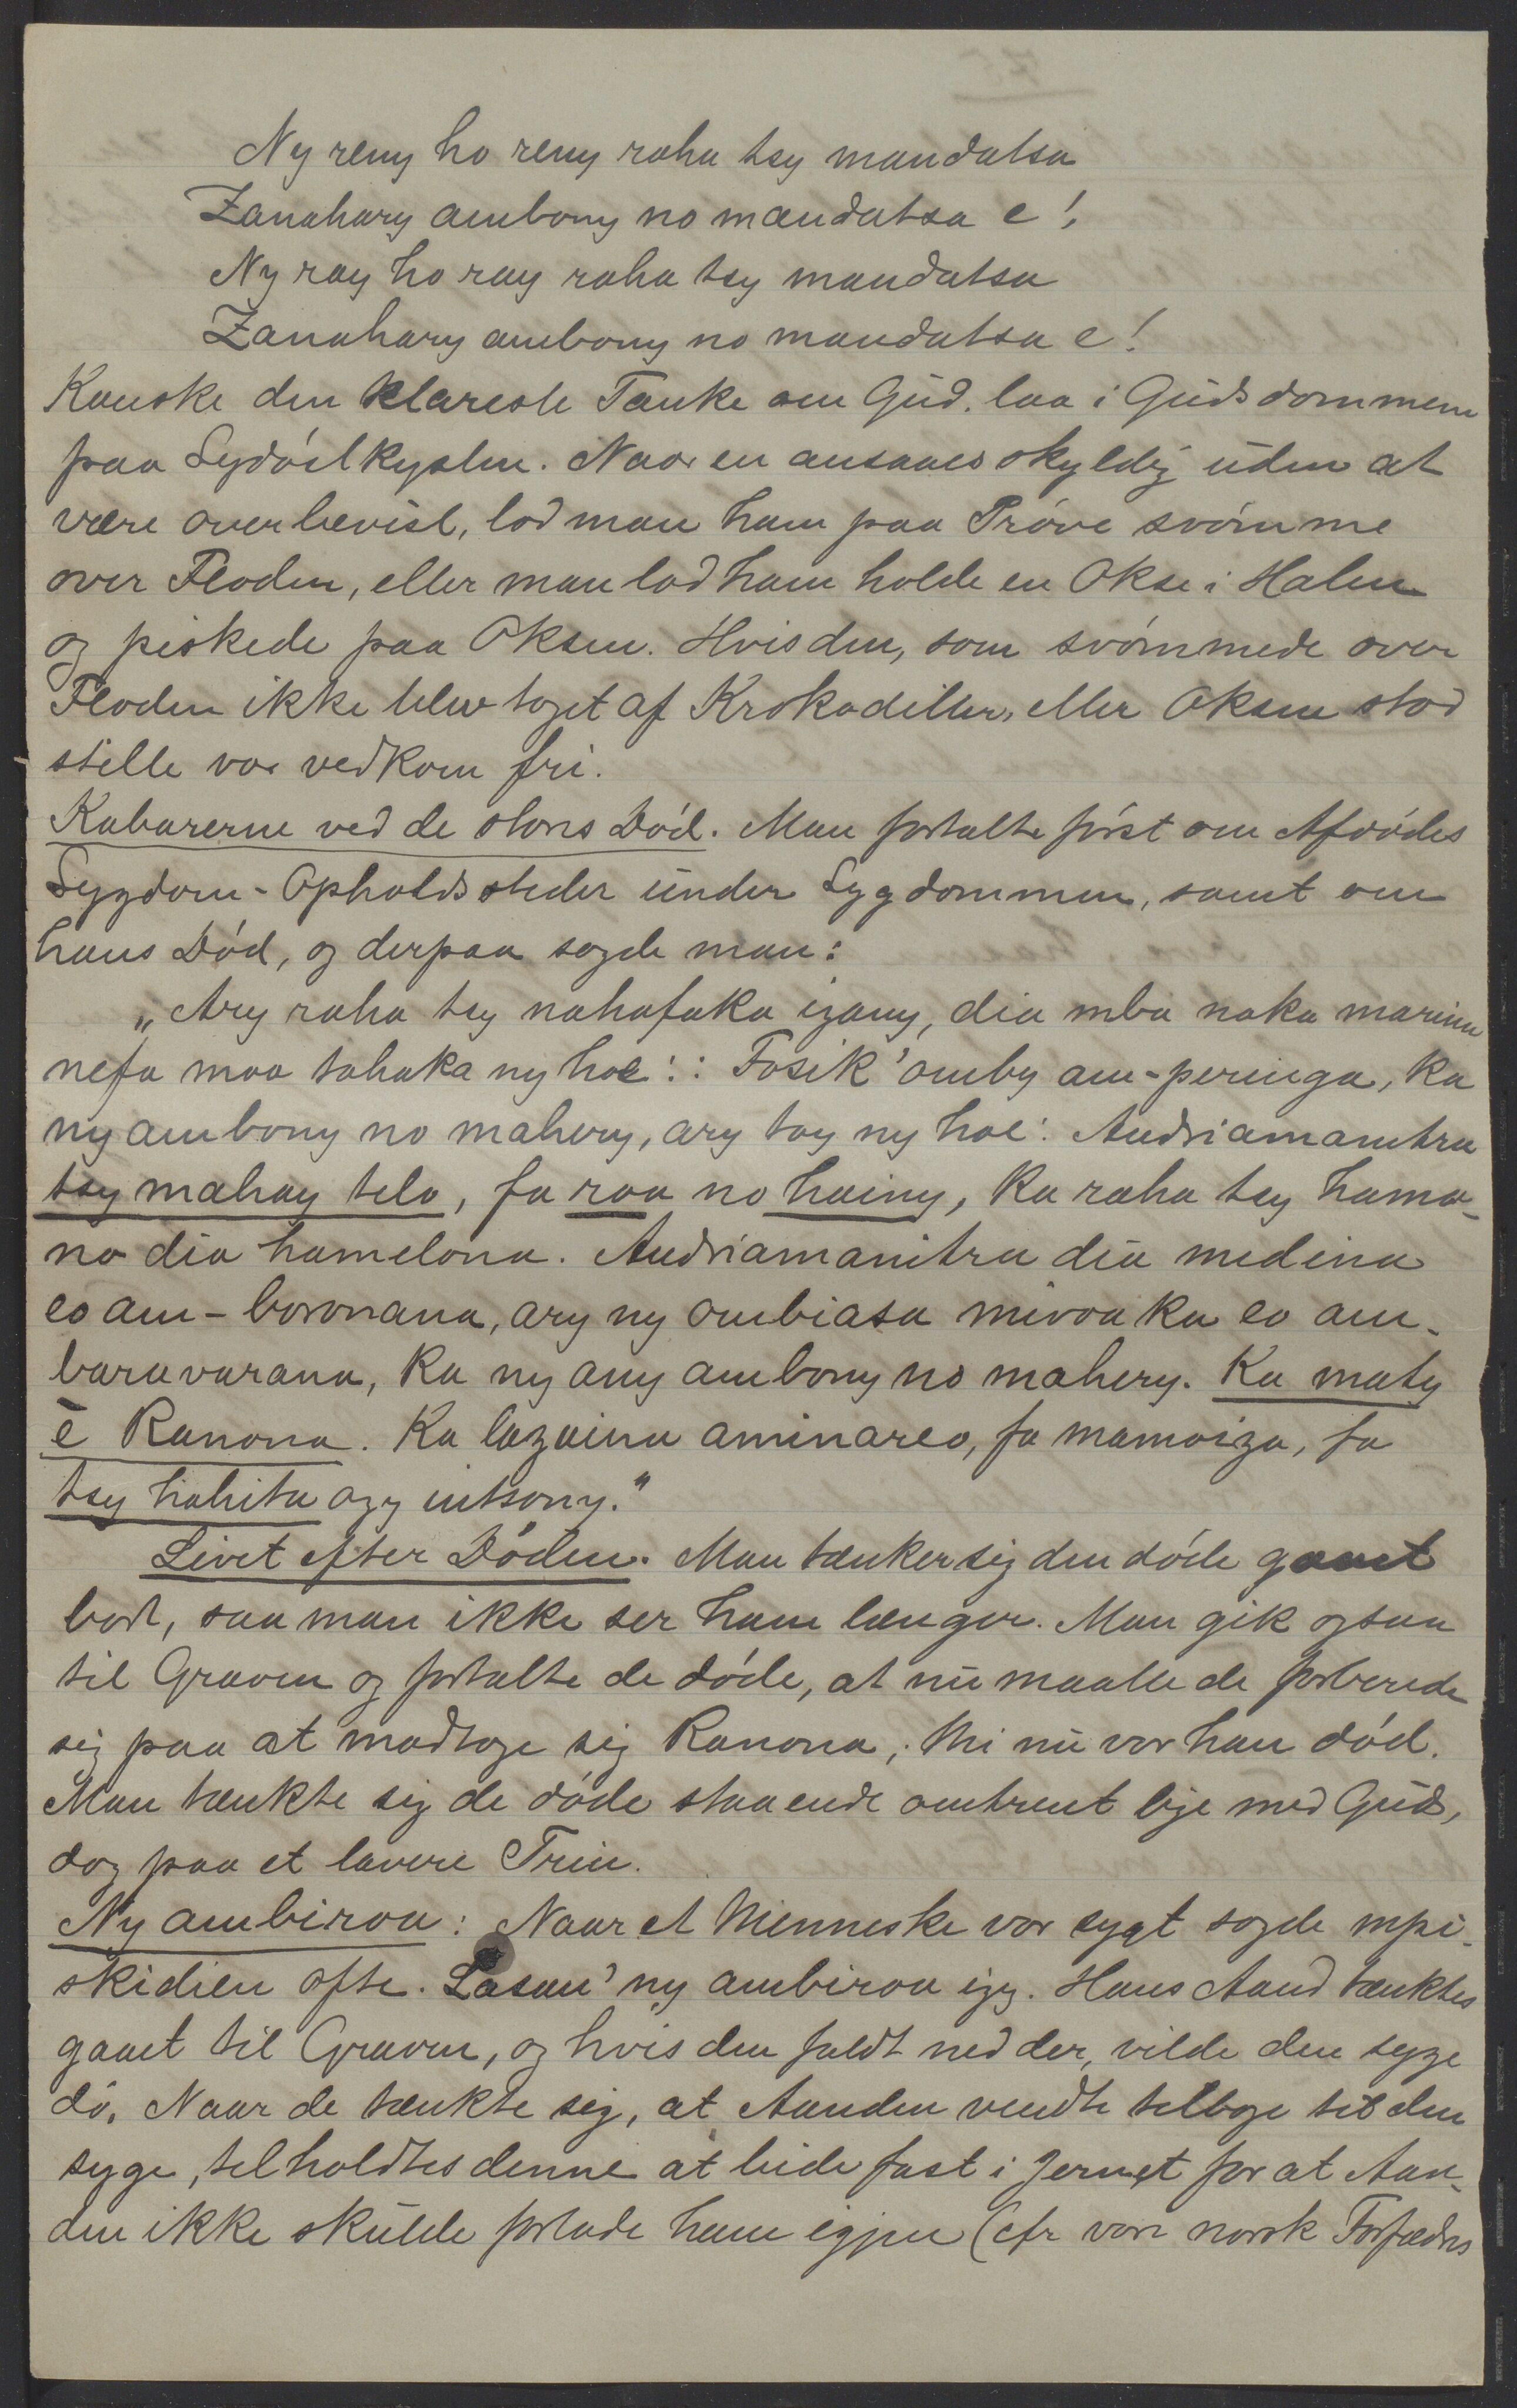 Ny reny ho reny raha tsy mandatsa
Zanahary ambony no mandatsa e!,
Ny ray ho ray raha tsy mandatsa
Zanahary ambony no mandatsa e!
Kanske den klareste Tanke om Gud. laa i Gudsdommen
paa Sydöstkysten. Naar en ansaaes skyldig uden at
være overbevist, lod man ham paa Pröve svömme
over Floden, eller man lod ham holde en Okse i Halen
og piskede paa Oksen. Hvis den, som svömmede over
Floden ikke blev taget af Krokodiller, eller Oksen stod
stille var vedkom fri.
Kabarerne ved de stores Död. Man fortalte först om Afdödes
Sygdom - Opholdssteder under Sygdommen, samt om
hans Död, og derpaa sagde man:
„Ary raha tsy nahafaka izany, dia mba naka marina
nefa moa tahaka ny hoe:: Fosik' omby am-peringa, ka
ny ambony no mahery, ary toy ny hoe: Andriamanitra
tsy mahay telo, fa roa no hainy, ka raha tsy hamo-
no dia hamelona. Andriamanitra dia medina
eo am-bovonana, ary ny ombiasa mivoaka eo am-
baravarana, ka ny any ambony no mahery. Ka maty
è Ranona. Ka lazaina aminareo, fa mamoiza, fa
tsy hahita azy intsony."
Livet efter Döden. Man tænker sig den döde gaaet
bort, saa man ikke ser ham længer. Man gik ogsaa
til Graven og fortalte de döde, at nu maatte de forberede
sig paa at modtage sig Ranona, thi nu var han död.
Man tænkte sig de döde staaende omtrent lige med Gud,
dog paa et lavere Trin.
Ny ambiroa: Naar et Menneske var sygt sagde mpi-
skidien ofte. Lasan' ny ambiroa izy. Hans Aand tænktes
gaaet til Graven, og hvis den faldt ned der, vilde den syge
dö. Naar de tænkte sig, at Aanden vendte tilbage til den
syge, tilholdtes denne at bide fast i Jernet for at Aan-
den ikke skulde forlade ham igjen (cfr vore norsk Forfædres